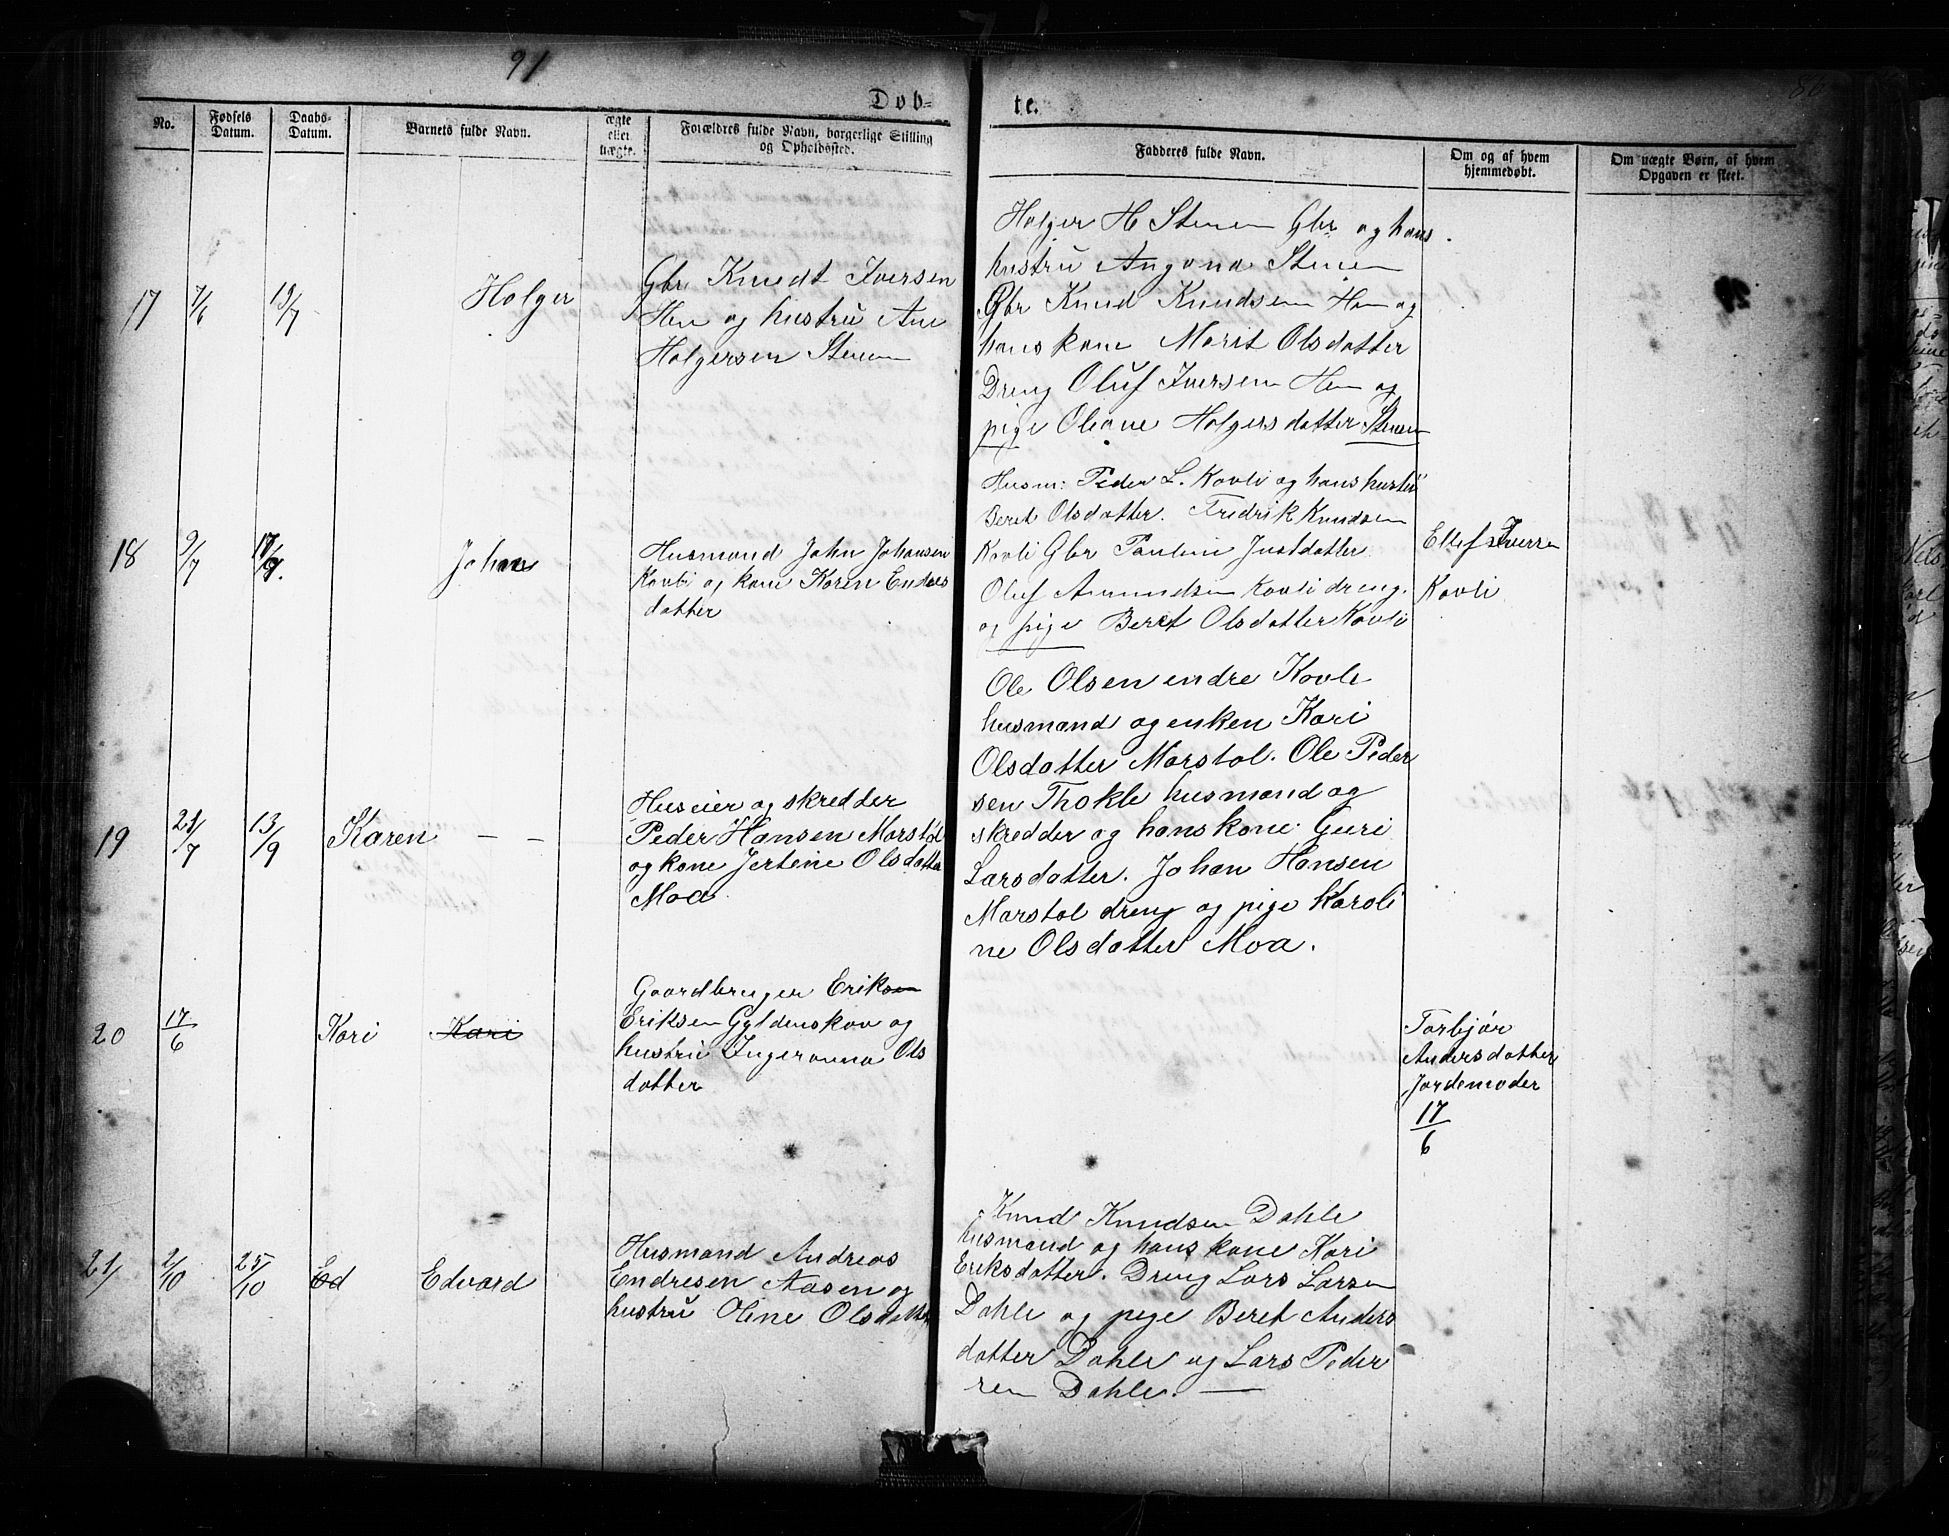 91
86
Døb-
te.
No.
Fødsels Datum.
Daabs-Datum.
Barnets fulde Navn.
ægte eller uægte.
Forældres fulde Navn, borgerlige Stilling og Opholdssted.
Fadderes fulde Navn.
Om og af hvem hjemmedøbt.
Om uægte Børn, af hvem Opgaven er skeet.
17
7/6
13/7
Holger
Gbr Knudt Iversen
Hen og hustru Ane
Holgersen Stenen
Holger H Stenen Gbr og hans
hustru Angana Stenen
Gbr Knud Knudsen Hen og
hans kone Marit Olsdatter
Dreng Oluf Iversen Hen og
pige Oliane Holgersdatter Stenen
18
9/7
17/9.
Johan
Husmand John Johansen
Kavli og kone Karen Endres
datter
Husm: Peder L. Kavli og hans hustru
Beret Olsdatter. Fredrik Knudsen
Kavli Gbr Pauline Justdatter
Oluf Amundsen Kavli dreng.
og pige Beret Olsdatter Kavli
Ellef Iversen
Kavli
19
21/7
13/9
Karen — —
Huseier og skredder
Peder Hansen Marstøl
og kone Jertine Olsdatter
Moa
Ole Olsen endre Kavle
husmand og enken Kari
Olsdatter Marstol. Ole Peder
sen Thokle husmand og
skredder og hans kone Guri
Larsdatter. Johan Hansen
Marstol dreng og pige Karoli
ne Olsdatter Moa.
20
17/6
Kari Kari
Gaardbruger Eriksen
Eriksen Gyldenskov og
hustru Ingeranna Ols
datter
Torbjør
Andersdatter
Jordemoder
17/6
21
2/10
25/10
Ed Edvard
Husmand Andreas
Endresen Aasen og
hustru Oline Olsdatter
Knud Knudsen Dahle
husmand og hans kone Kari
Eriksdatter. Dreng Lars Larsen
Dahle og pige Beret Anders
datter Dahle og Lars Peder
sen Dahle. —